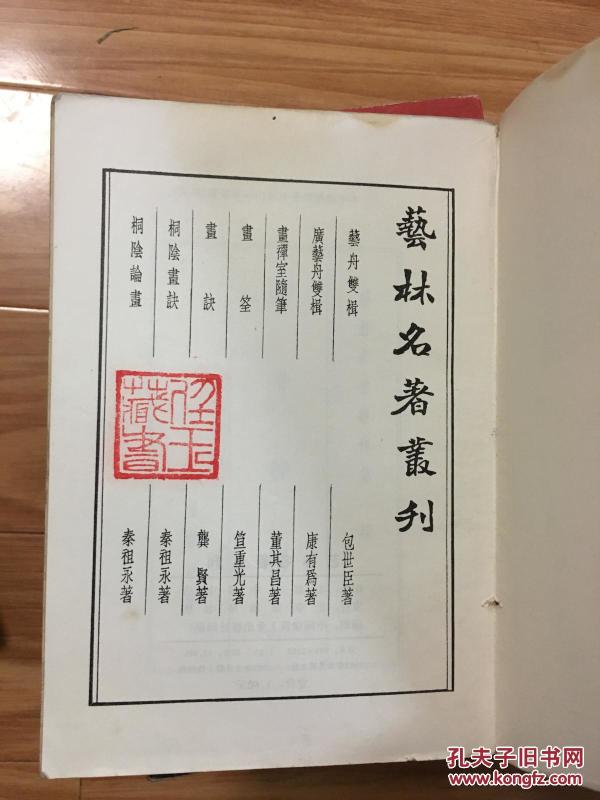 藝林名著叢刊
藝舟雙楫 包世臣著
廣藝舟雙楫 康有爲著
畫禪室隨筆 董其昌著
畫筌 笪重光著
畫訣 龔賢著
桐陰畫訣 秦祖永著
桐陰論畫 秦祖永著
藏書
孔夫子旧书网
www.kongfz.com